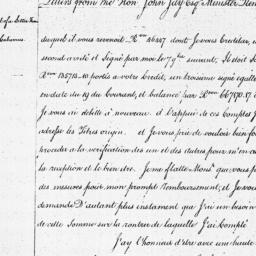 Letters from the Hon. John Jay Esqr. Minister Plen
lequel il vous revenoit R.vn 46247 dont je vous Creditai, un
second arrêté et Signé par moi le 7 9bre suivant, Il doit
Rvn 135713..10 portés a votre Credit, un troisieme signé egallem
en date du 19 du Courant, et balancé par Rvn 667170.17
Je vous ai debité à nouveau. à l'appui de ces Comptes
adresse les Titres origin. et je vous prie de vouloir bien
proceder a la verification des un et des autres pour m'en
la reception et le bien etre. Je me flatte Monsr. que vous
des mesures pour mon prompt Remboursement, et Je vous
demande D'autant plus instament que J'ai un besoin
de cette Somme sur la rentrée de laquelle J'ai Compté
J'ay l'honneur d'etre avec une haute